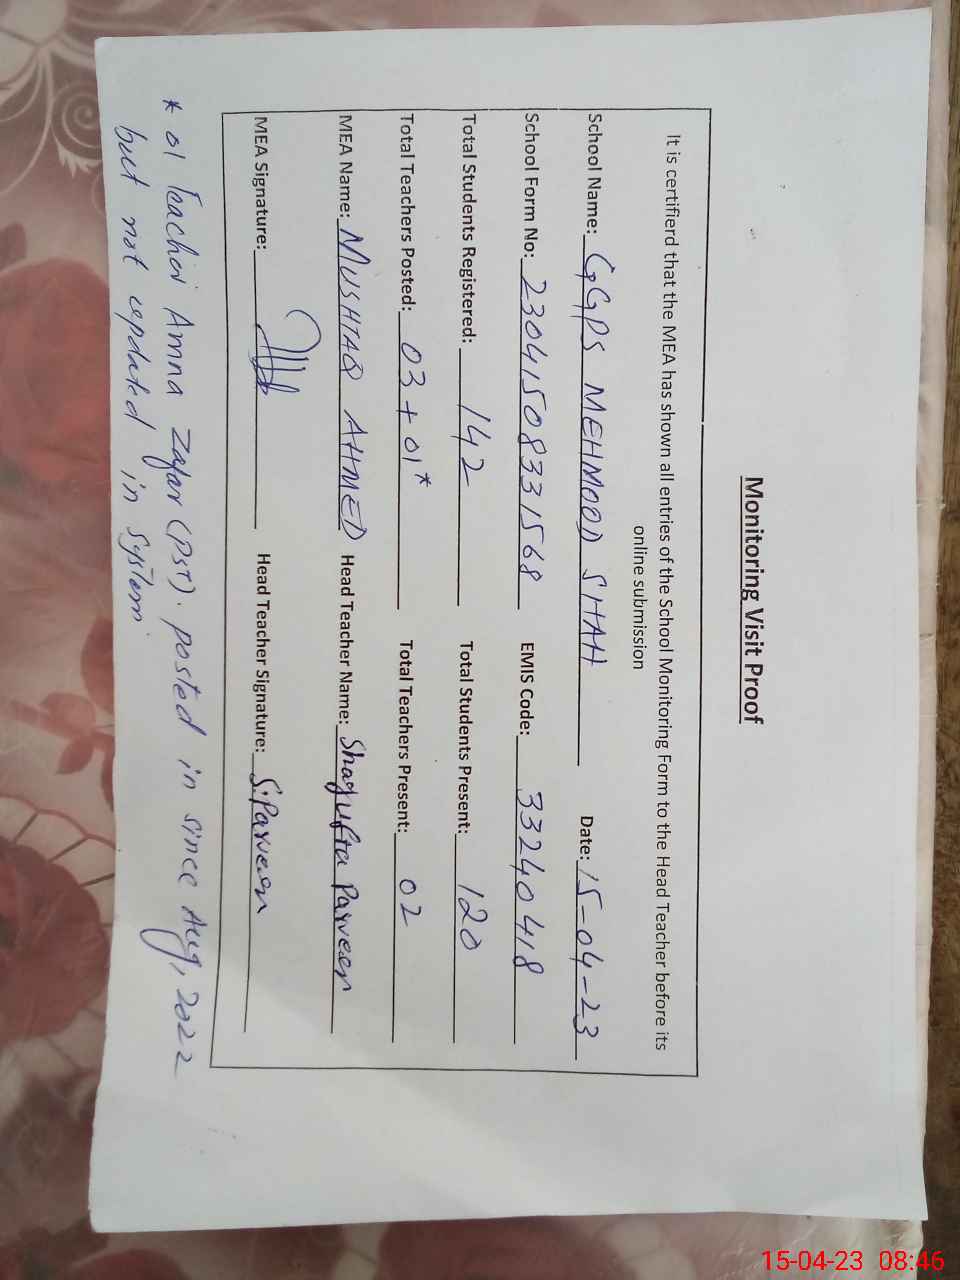 Monitoring Visit Proof
It is certifierd that the MEA has shown all entries of the School Monitoring Form to the Head Teacher before its
online submission
School Name: GGPS MEHMOOD SHAH Date: 15-04-23
School Form No: 23041508331568 EMIS Code: 33240418
Total Students Registered: 142 Total Students Present: 120
Total Teachers Posted: 03 + 01* Total Teachers Present: 02
MEA Name: MUSHTAQ AHMED Head Teacher Name: Shagufta Parveen
MEA Signature: Head Teacher Signature: S.Parveen
* 01 Teacher Amna Zafar (PST). posted in since Aug, 2022
but not updated in system.
15-04-23 08:46